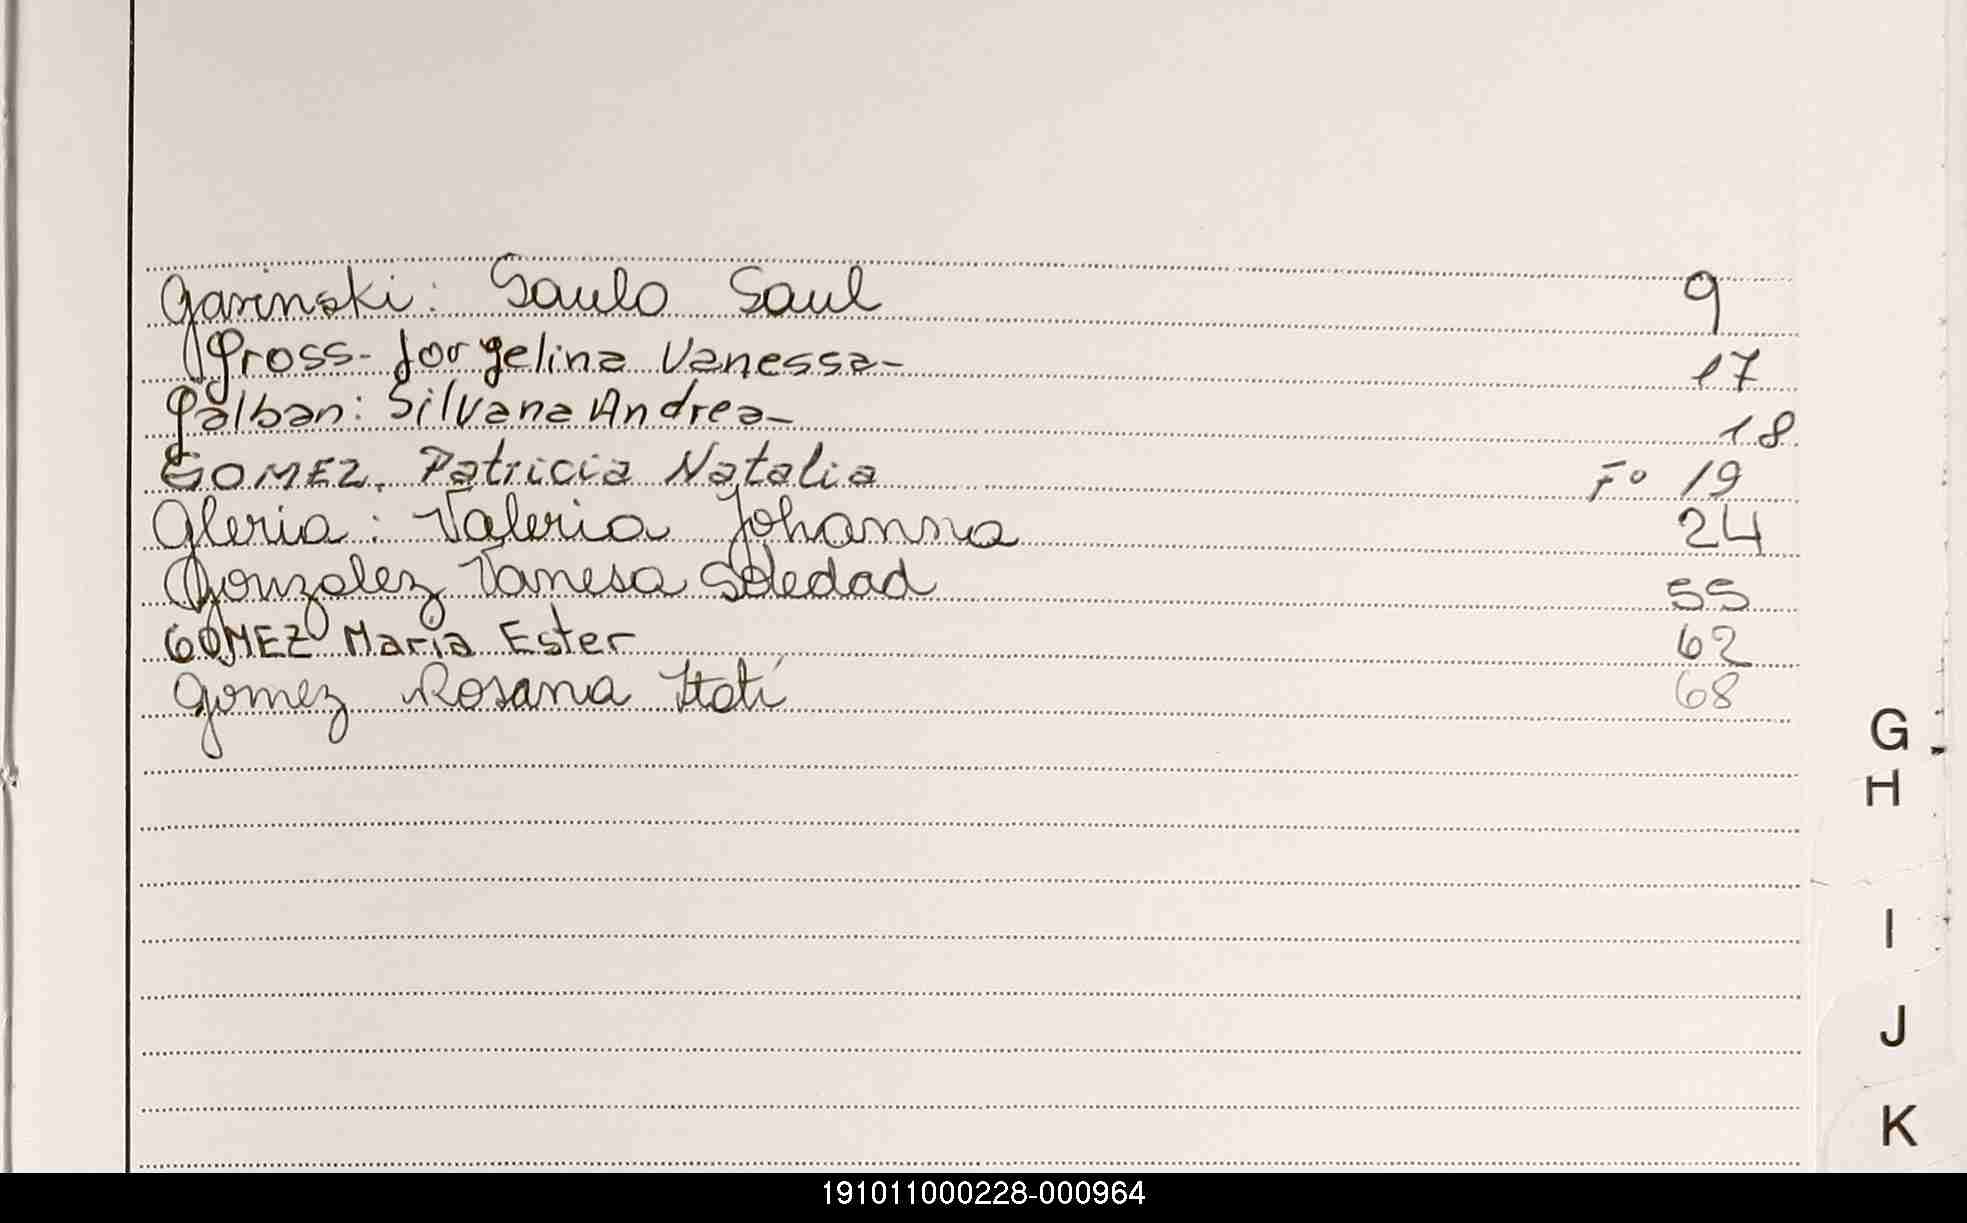 Garinski: Saulo Saul 9
Gross- Jorgelina Vanessa- 17
Galban: Silvana Andrea- 18
GOMEZ. Patricia Natalia Fº 19
Gleria: Valeria Johanna 24
Gonzalez Vanesa Soledad 55
GOMEZ Maria Ester 62
Gomez Rosana Itatí 68
G
H
I
J
K
191011000228-000964